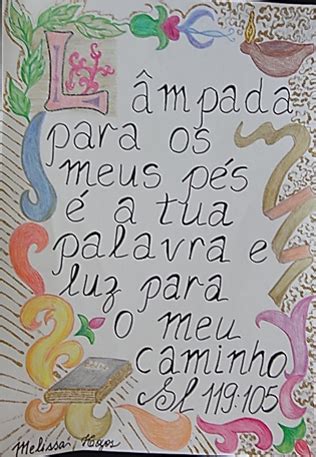 Lâmpada
para os
meus pés
é a tua
palavra e
luz para
o meu
caminho
Sl 119:105
Melissa